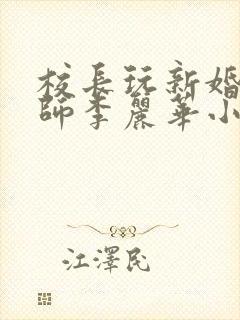 校長玩新婚
師李麗華小
江澤民